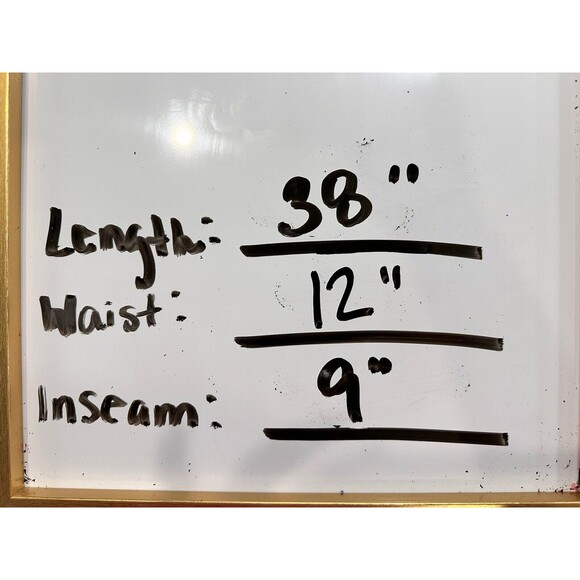 Length: 38"
Waist: 12"
Inseam: 9"